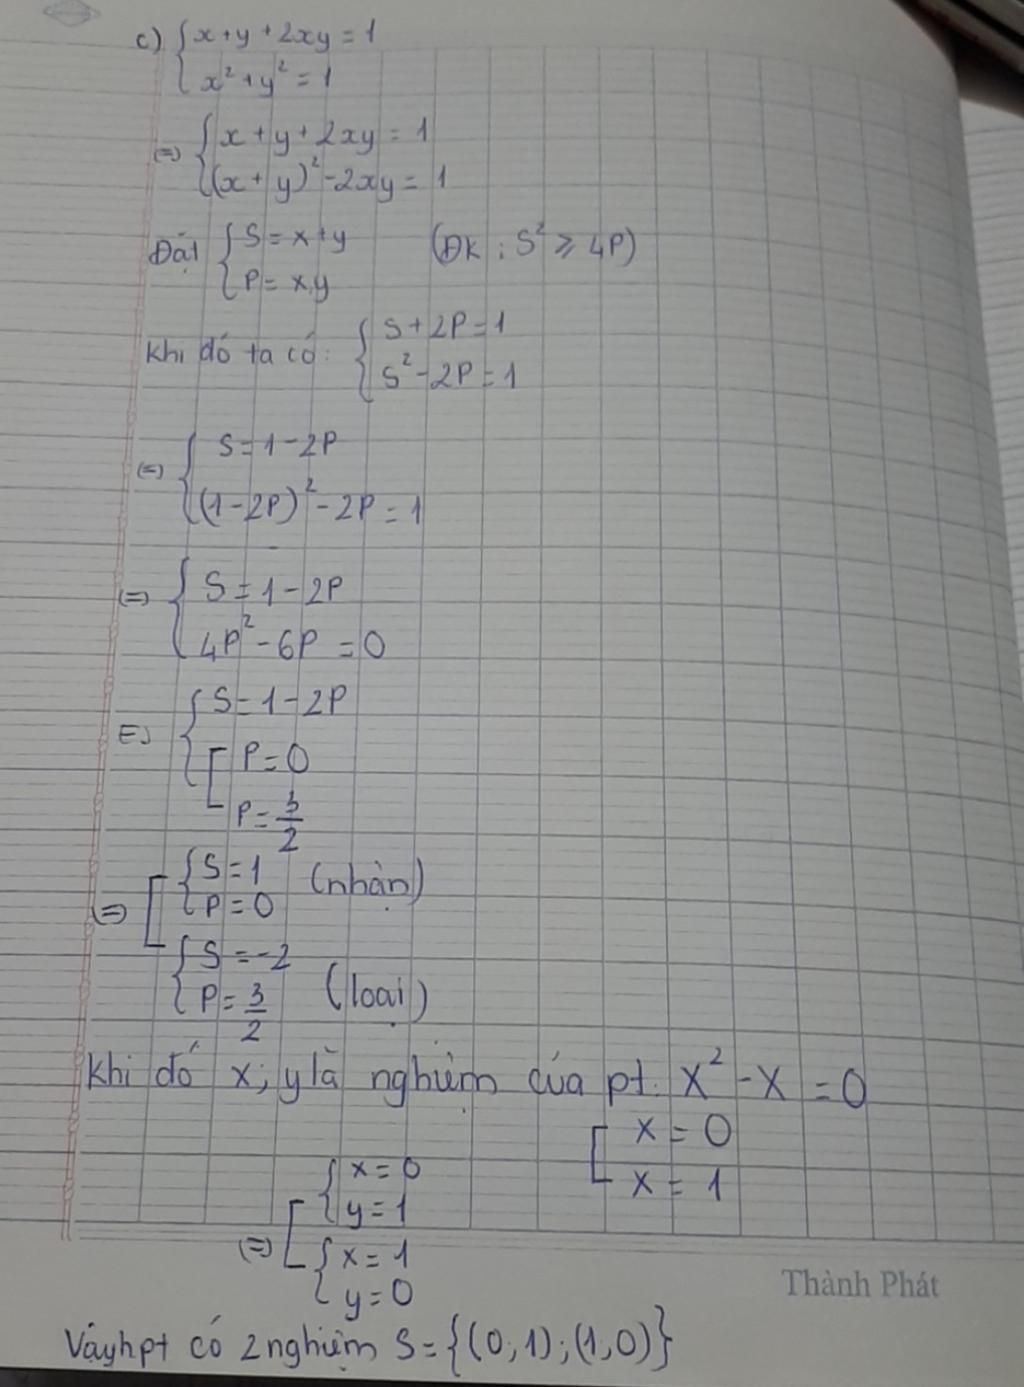 c) { x + y + 2xy = 1
x² + y² = 1
(=) { x + y + 2xy = 1
(x + y)² - 2xy = 1
Đặt { S = x + y (ĐK : S² ≥ 4P)
P = x.y
Khi đó ta có: { S + 2P = 1
S² - 2P = 1
(=) { S = 1 - 2P
(1 - 2P)² - 2P = 1
(=) { S = 1 - 2P
4P² - 6P = 0
(=) { S = 1 - 2P
[ P = 0
P = 3/2
(=) [ { S = 1 (nhận)
P = 0
{ S = -2
P = 3/2 (loại)
Khi đó x; y là nghiệm của pt: X² - X = 0
[ X = 0
X = 1
(=) [ { x = 0
y = 1
{ x = 1
y = 0
Thành Phát
Vậy hpt có 2 nghiệm S = {(0; 1); (1; 0)}